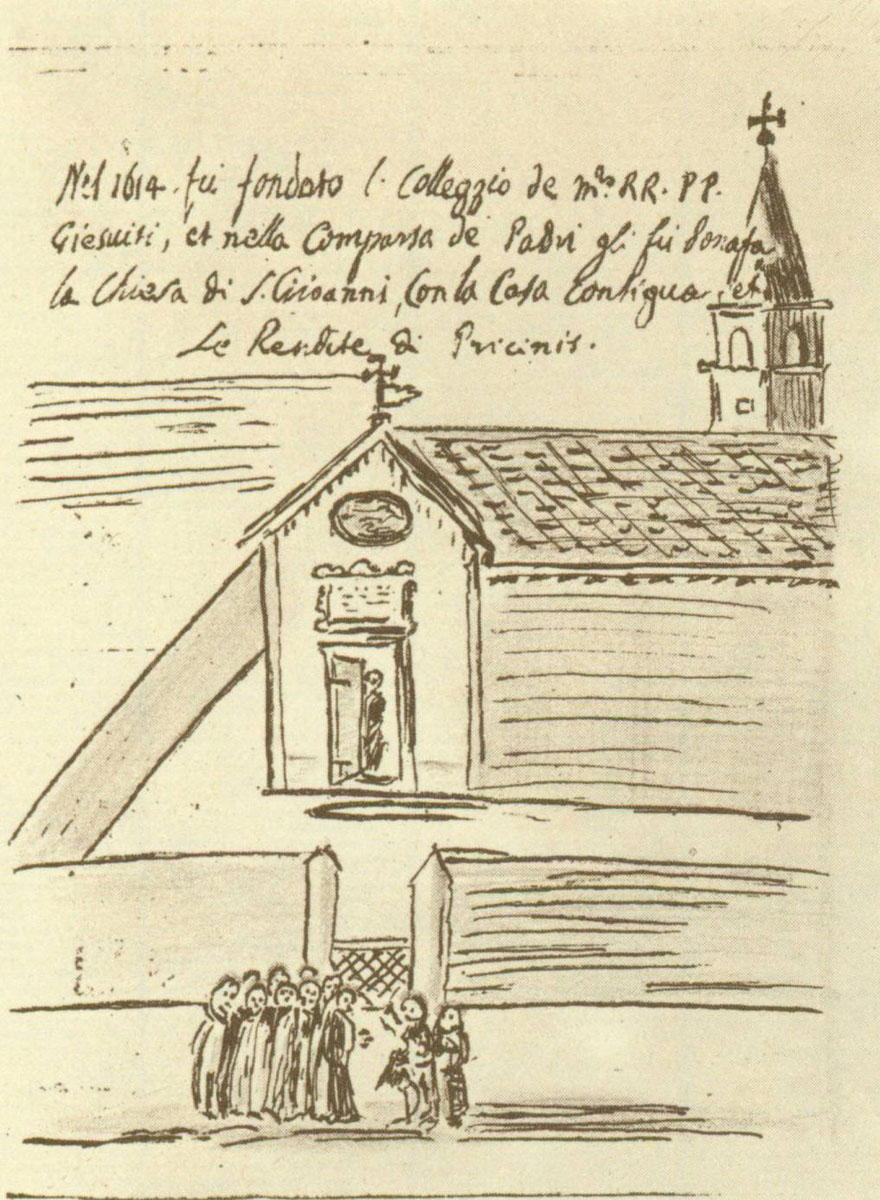 Nel 1614. fu fondato l. Colleggio de m.to RR. PP.
Giesuiti, et nella Comparsa de Padri gli fu donata
la Chiesa di S. Giovanni, Con la Casa Contigua, et
Le Rendite di Pricinis.